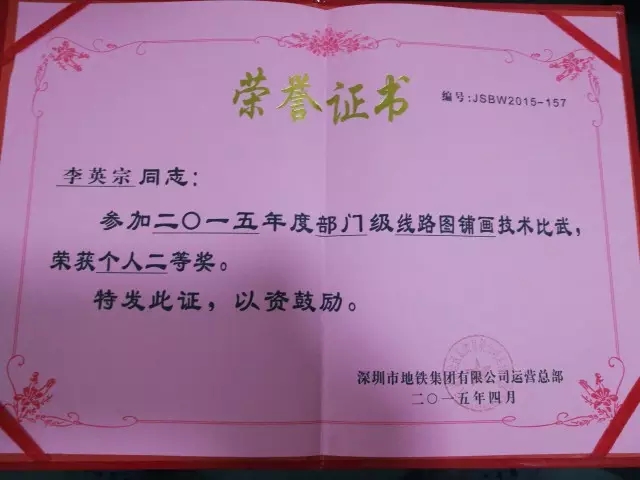 荣誉证书
编号:JSBW2015-157
李英宗同志:
参加二〇一五年度部门级线路图铺画技术比武,
荣获个人二等奖。
特发此证,以资鼓励。
深圳市地铁集团有限公司运营总部
二〇一五年四月